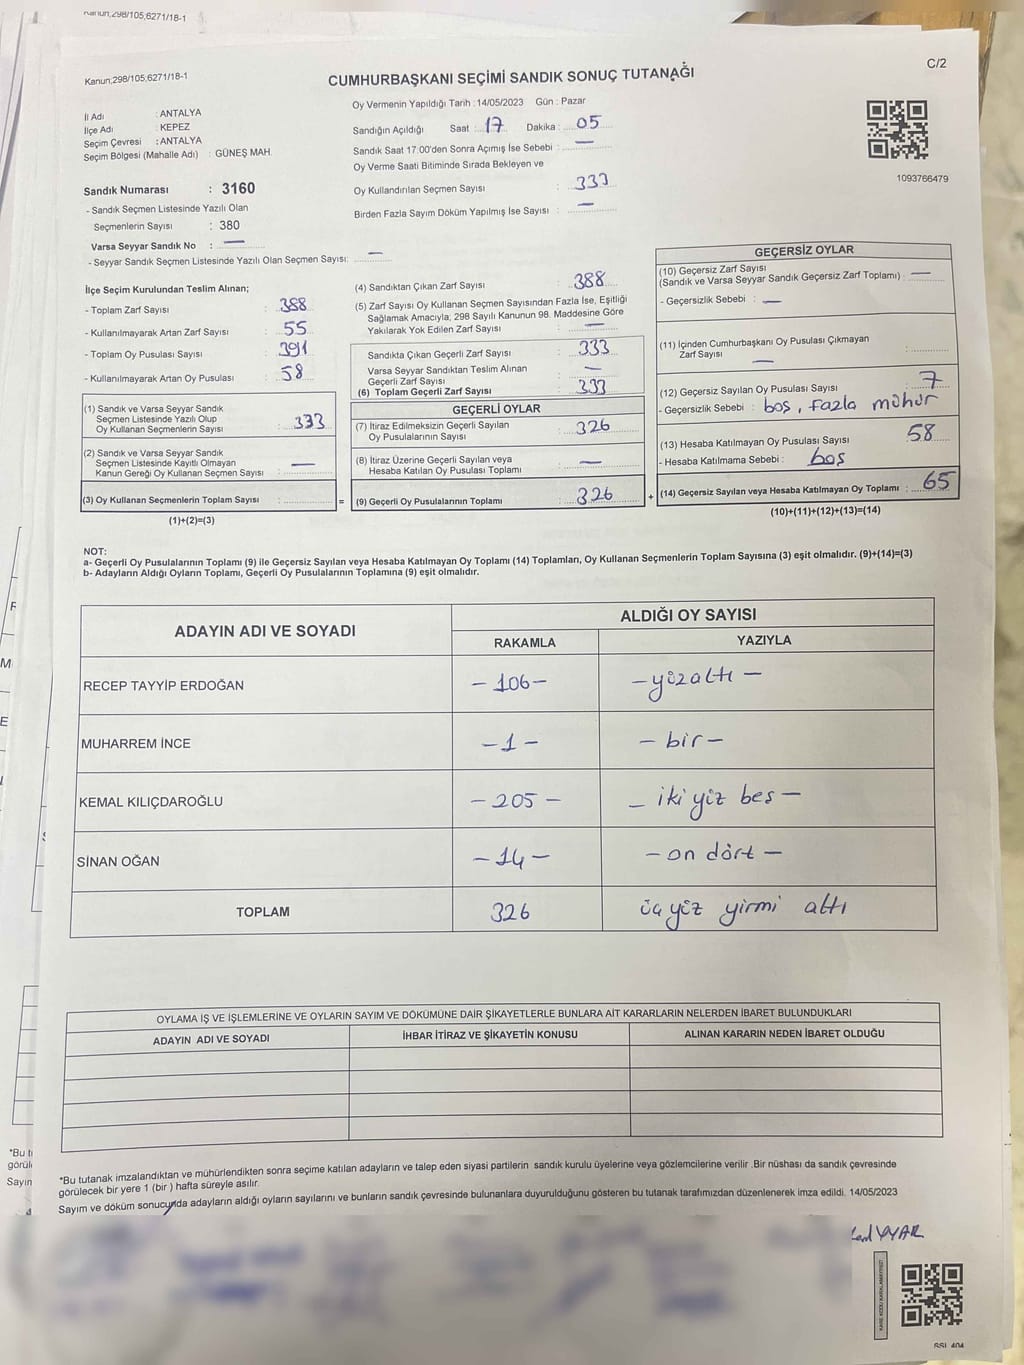 Kanun,298/105,6271/18-1
Kanun,298/105,6271/18-1
C/2
CUMHURBAŞKANI SEÇİMİ SANDIK SONUÇ TUTANAĞI
İl Adı : ANTALYA
İlçe Adı : KEPEZ
Seçim Çevresi : ANTALYA
Seçim Bölgesi (Mahalle Adı) : GÜNEŞ MAH.
Oy Vermenin Yapıldığı Tarih : 14/05/2023 Gün : Pazar
Sandığın Açıldığı Saat : 17 Dakika : 05
Sandık Saat 17:00'den Sonra Açımış İse Sebebi : —
Oy Verme Saati Bitiminde Sırada Bekleyen ve
Oy Kullandırılan Seçmen Sayısı : 333
Birden Fazla Sayım Döküm Yapılmış İse Sayısı : —
1093766479
Sandık Numarası : 3160
- Sandık Seçmen Listesinde Yazılı Olan
Seçmenlerin Sayısı : 380
Varsa Seyyar Sandık No : —
- Seyyar Sandık Seçmen Listesinde Yazılı Olan Seçmen Sayısı: —
İlçe Seçim Kurulundan Teslim Alınan;
- Toplam Zarf Sayısı : 388
- Kullanılmayarak Artan Zarf Sayısı : 55
- Toplam Oy Pusulası Sayısı : 391
- Kullanılmayarak Artan Oy Pusulası : 58
(1) Sandık ve Varsa Seyyar Sandık
Seçmen Listesinde Yazılı Olup
Oy Kullanan Seçmenlerin Sayısı : 333
(2) Sandık ve Varsa Seyyar Sandık
Seçmen Listesinde Kayıtlı Olmayan
Kanun Gereği Oy Kullanan Seçmen Sayısı : —
(3) Oy Kullanan Seçmenlerin Toplam Sayısı :
(1)+(2)=(3)
=
(4) Sandıktan Çıkan Zarf Sayısı : 388
(5) Zarf Sayısı Oy Kullanan Seçmen Sayısından Fazla İse, Eşitliği
Sağlamak Amacıyla, 298 Sayılı Kanunun 98. Maddesine Göre
Yakılarak Yok Edilen Zarf Sayısı : —
Sandıkta Çıkan Geçerli Zarf Sayısı : 333
Varsa Seyyar Sandıktan Teslim Alınan
Geçerli Zarf Sayısı : —
(6) Toplam Geçerli Zarf Sayısı : 333
GEÇERLİ OYLAR
(7) İtiraz Edilmeksizin Geçerli Sayılan
Oy Pusulalarının Sayısı : 326
(8) İtiraz Üzerine Geçerli Sayılan veya
Hesaba Katılan Oy Pusulası Toplamı : —
(9) Geçerli Oy Pusulalarının Toplamı : 326
+
GEÇERSİZ OYLAR
(10) Geçersiz Zarf Sayısı
(Sandık ve Varsa Seyyar Sandık Geçersiz Zarf Toplamı) : —
- Geçersizlik Sebebi : —
(11) İçinden Cumhurbaşkanı Oy Pusulası Çıkmayan
Zarf Sayısı :
—
(12) Geçersiz Sayılan Oy Pusulası Sayısı : 7
- Geçersizlik Sebebi : boş, fazla mühür
(13) Hesaba Katılmayan Oy Pusulası Sayısı 58
- Hesaba Katılmama Sebebi : boş
(14) Geçersiz Sayılan veya Hesaba Katılmayan Oy Toplamı : 65
(10)+(11)+(12)+(13)=(14)
NOT:
a- Geçerli Oy Pusulalarının Toplamı (9) ile Geçersiz Sayılan veya Hesaba Katılmayan Oy Toplamı (14) Toplamları, Oy Kullanan Seçmenlerin Toplam Sayısına (3) eşit olmalıdır. (9)+(14)=(3)
b- Adayların Aldığı Oyların Toplamı, Geçerli Oy Pusulalarının Toplamına (9) eşit olmalıdır.
ADAYIN ADI VE SOYADI
ALDIĞI OY SAYISI
RAKAMLA YAZIYLA
RECEP TAYYİP ERDOĞAN -106- -yüzaltı-
MUHARREM İNCE -1- -bir-
KEMAL KILIÇDAROĞLU -205- - iki yüz beş -
SİNAN OĞAN -14- -on dört-
TOPLAM 326 üç yüz yirmi altı
OYLAMA İŞ VE İŞLEMLERİNE VE OYLARIN SAYIM VE DÖKÜMÜNE DAİR ŞİKAYETLERLE BUNLARA AİT KARARLARIN NELERDEN İBARET BULUNDUKLARI
ADAYIN ADI VE SOYADI İHBAR İTİRAZ VE ŞİKAYETİN KONUSU ALINAN KARARIN NEDEN İBARET OLDUĞU
*Bu tutanak imzalandıktan ve mühürlendikten sonra seçime katılan adayların ve talep eden siyasi partilerin sandık kurulu üyelerine veya gözlemcilerine verilir .Bir nüshası da sandık çevresinde
görülecek bir yere 1 (bir ) hafta süreyle asılır.
Sayım ve döküm sonucunda adayların aldığı oyların sayılarını ve bunların sandık çevresinde bulunanlara duyurulduğunu gösteren bu tutanak tarafımızdan düzenlenerek imza edildi. 14/05/2023
UYAR